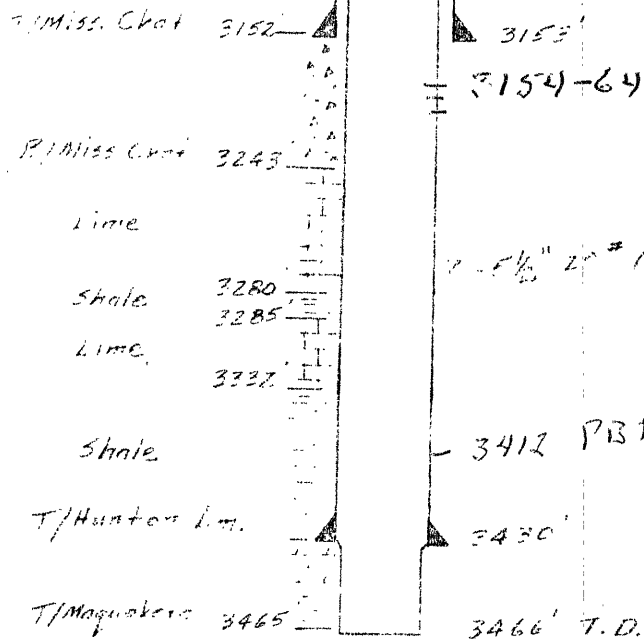 T/Miss. Chat 3152' 3153'
3154-64
B/Miss Chat 3243'
Lime
Shale 3280'
3285'
Lime
3332'
Shale
3412 PB
T/Hunton Lm. 3430'
T/Maquoketa 3465 3466' T.D.